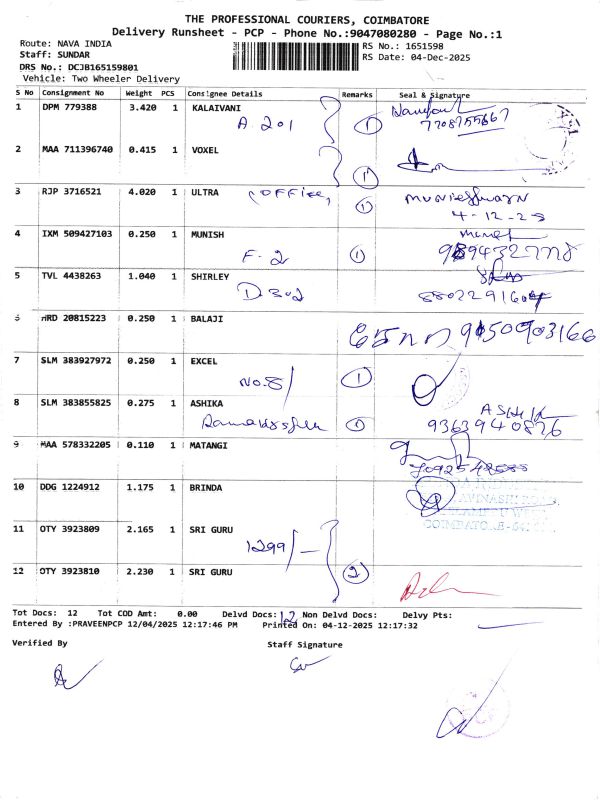 THE PROFESSIONAL COURIERS, COIMBATORE
Delivery Runsheet - PCP - Phone No.:9047080280 - Page No.:1
Route: NAVA INDIA RS No.: 1651598
Staff: SUNDAR RS Date: 04-Dec-2025
DRS No.: DCJB165159801
Vehicle: Two Wheeler Delivery
S No Consignment No Weight PCS Consignee Details Remarks Seal & Signature
1 DPM 779388 3.420 1 KALAIVANI
A 201 1 7708755667
2 MAA 711396740 0.415 1 VOXEL
1
3 RJP 3716521 4.020 1 ULTRA (OFFICE) 1
4-12-25
4 IXM 509427103 0.250 1 MUNISH
F-2 1
5 TVL 4438263 1.040 1 SHIRLEY
D-302
20815223 0.250 1 BALAJI
9150903166
7 SLM 383927972 0.250 1 EXCEL
NO.8/ 1
8 SLM 383855825 0.275 1 ASHIKA
1 9363940826
9 MAA 578332205 0.110 1 MATANGI
10 DDG 1224912 1.175 1 BRINDA
11 OTY 3923809 2.165 1 SRI GURU
1299/-
12 OTY 3923810 2.230 1 SRI GURU 2
Tot Docs: 12 Tot COD Amt: 0.00 Delvd Docs: 12 Non Delvd Docs: Delvy Pts:
Entered By :PRAVEENPCP 12/04/2025 12:17:46 PM Printed On: 04-12-2025 12:17:32
Verified By Staff Signature